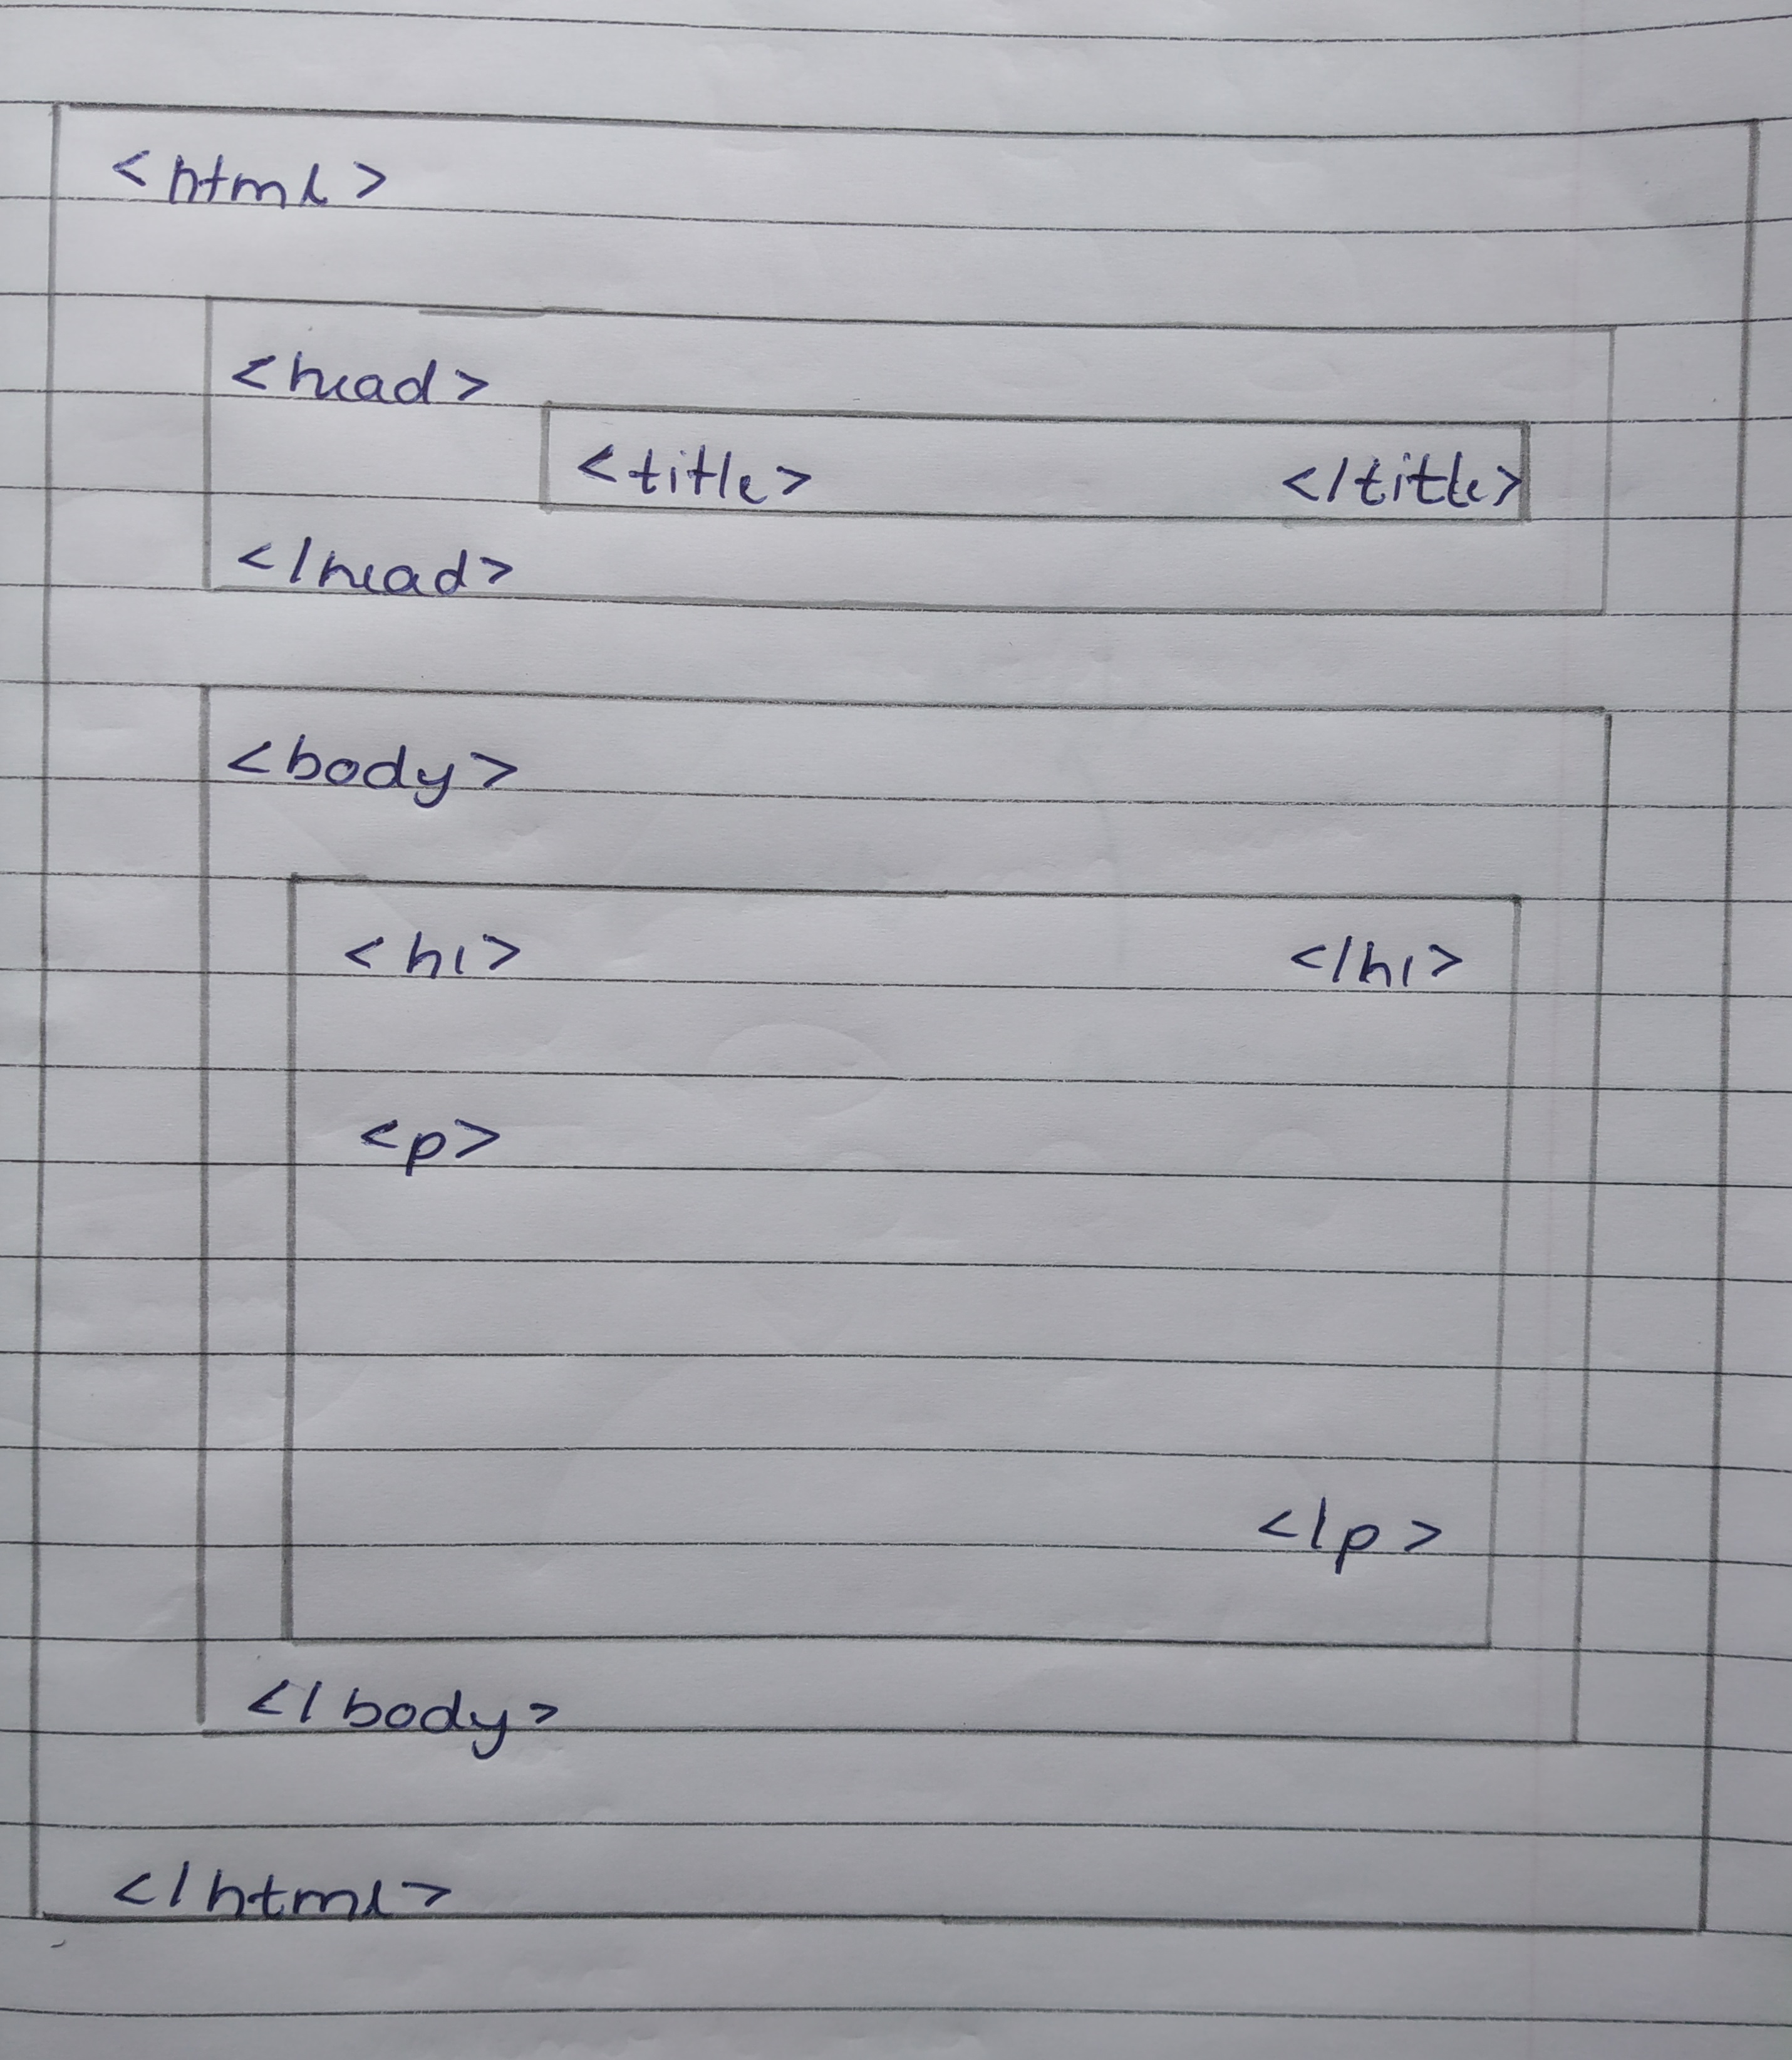 <html>
<head>
<title> </title>
</head>
<body>
<h1> </h1>
<p>
</p>
</body>
</html>